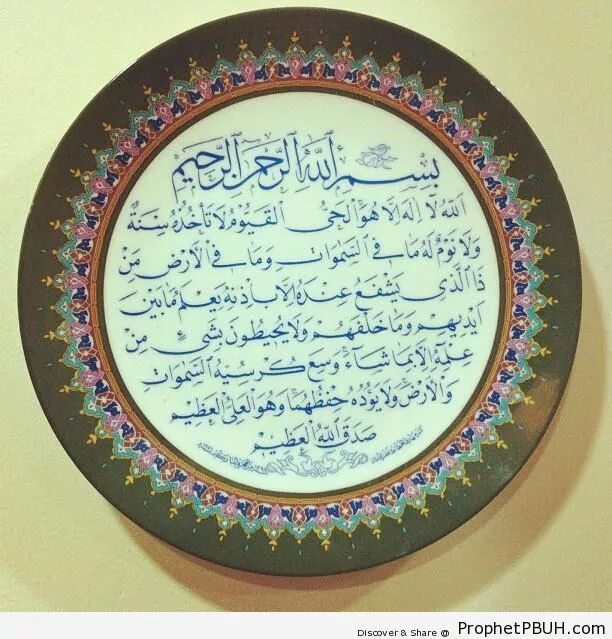 بِسْمِ اللهِ الرَّحْمٰنِ الرَّحِيْمِ
اَللهُ لَا اِلٰهَ اِلَّا هُوَ اَلْحَىُّ الْقَيُّوْمُ لَا تَأْخُذُهُ سِنَةٌ
وَلَا نَوْمٌ لَهُ مَا فِى السَّمٰوَاتِ وَمَا فِى الْاَرْضِ مَنْ
ذَا الَّذِى يَشْفَعُ عِنْدَهُ اِلَّا بِاِذْنِهِ يَعْلَمُ مَا بَيْنَ
اَيْدِيهِمْ وَمَا خَلْفَهُمْ وَلَا يُحِيطُونَ بِشَىْءٍ مِنْ
عِلْمِهِ اِلَّا بِمَا شَاءَ وَسِعَ كُرْسِيُّهُ السَّمٰوَاتِ
وَالْاَرْضَ وَلَا يَؤُدُهُ حِفْظُهُمَا وَهُوَ الْعَلِىُّ الْعَظِيْمُ
صَدَقَ اللهُ الْعَظِيْمُ
Discover & Share @ ProphetPBUH.com